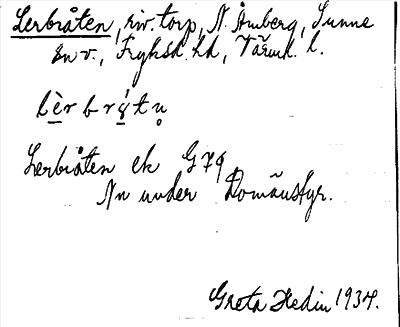 Lerbråten, riv. torp, N. Åmberg, Sunne
sn v., Fryksd. hd, Värml. l.
lèrbrý̜tn̥
Lerbråten ek G79
Nn under Domänstyr.
Greta Hedin 1934.